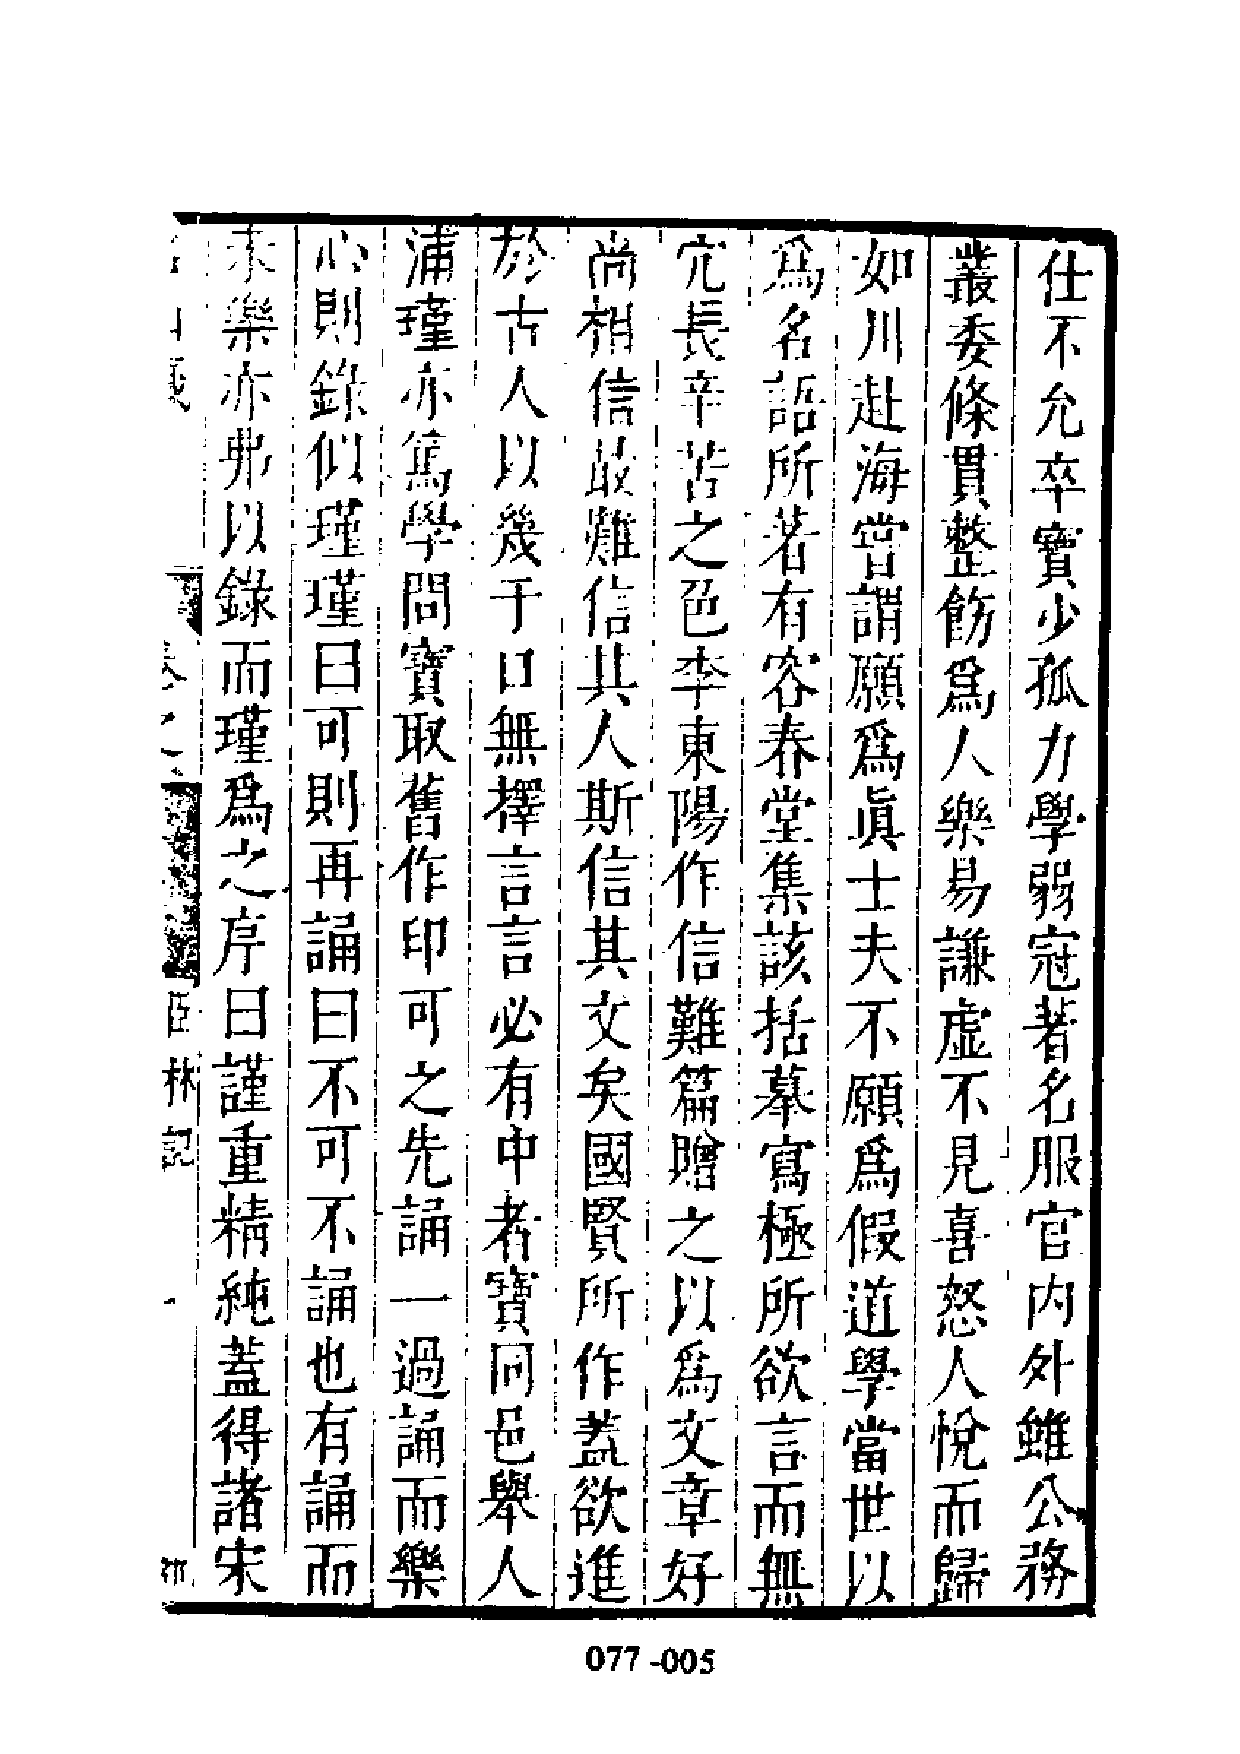 仕不允卒寶少孤力學弱冠著名服官內外雖公務
叢委條貫整飭爲人樂易謙虛不見喜怒人悅而歸
如川赴海嘗謂願爲眞士夫不願爲假道學當世以
爲名語所著有容春堂集該括摹寫極所欲言而無
冗長辛苦之色李東陽作信難篇贈之以爲文章好
尚相信最難信其人斯信其文矣國賢所作蓋欲進
於古人以幾于口無擇言言必有中者寶同邑舉人
浦瑾亦篤學問寶取舊作印可之先誦一過誦而樂
心則錄似瑾瑾曰可則再誦曰不可不誦也有誦而
未樂亦弗以錄而瑾爲之序曰謹重精純蓋得諸宋
卷之
臣林記
一
077-005